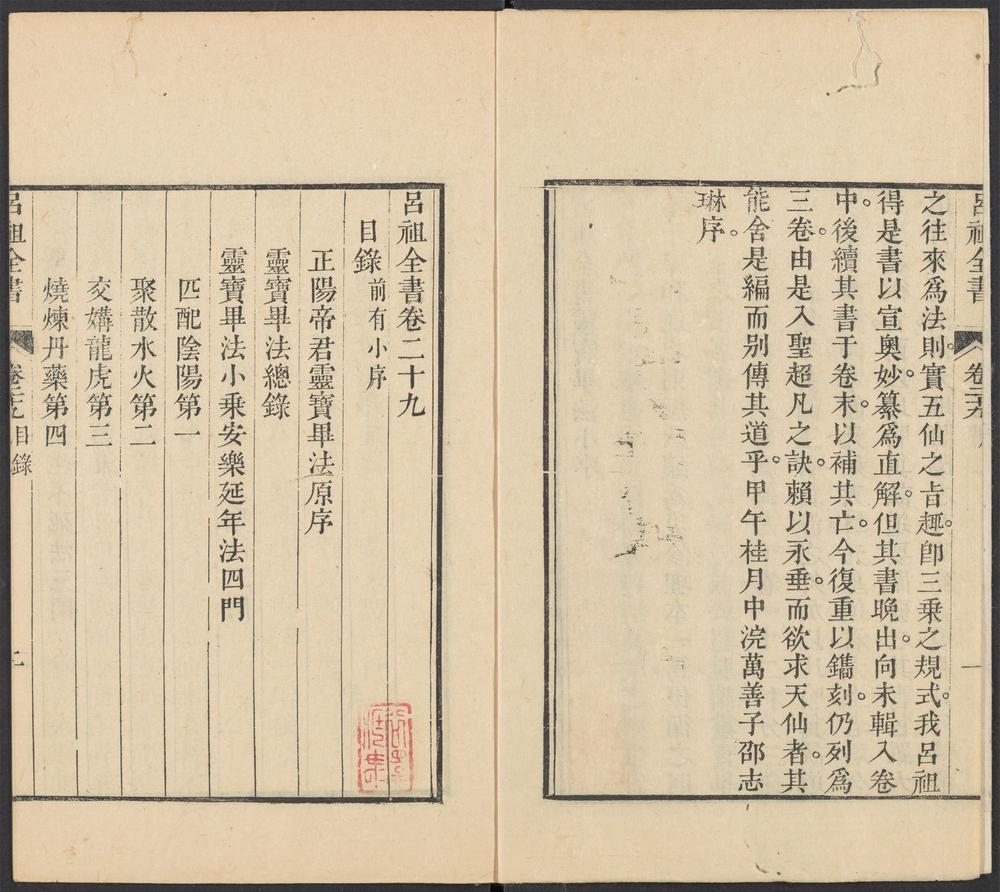 呂祖全書
卷二十九
一
之往來爲法則。實五仙之旨趣。卽三乘之規式。我呂祖
得是書以宣奧妙。纂爲直解。但其書晚出。向未輯入卷
中。後續其書于卷末。以補其亡。今復重以鐫刻。仍列爲
三卷。由是入聖超凡之訣。賴以永垂。而欲求天仙者。其
能舍是編而别傳其道乎。甲午桂月中浣萬善子邵志
琳序。
呂祖全書卷二十九
目錄 前有小序
正陽帝君靈寶畢法原序
靈寶畢法總錄
靈寶畢法小乘安樂延年法四門
匹配陰陽第一
聚散水火第二
交媾龍虎第三
燒煉丹藥第四
呂祖全書
卷二十九目錄